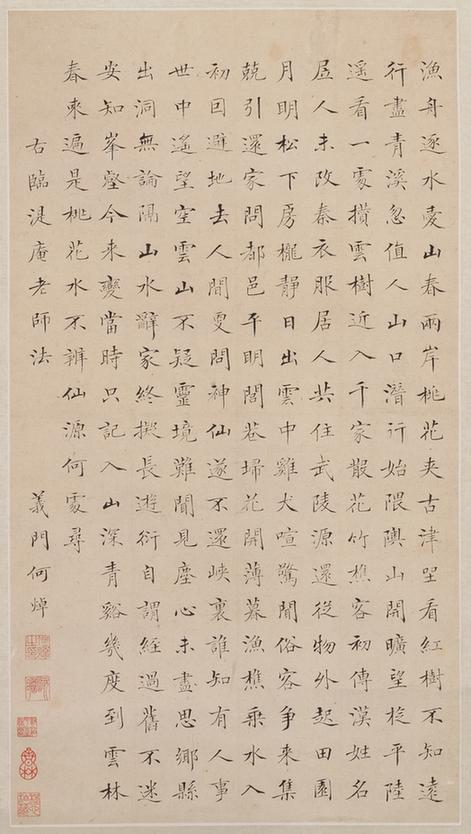 漁舟逐水愛山春兩岸桃花夾古津坐看紅樹不知遠
行盡青溪忽值人山口潛行始隈隩山開曠望旋平陸
遥看一處攢雲樹近入千家散花竹樵客初傳漢姓名
居人未改秦衣服居人共住武陵源還從物外起田園
月明松下房櫳靜日出雲中雞犬喧驚聞俗客爭來集
兢引還家問都邑平明閭巷埽花開薄暮漁樵乗水入
初囙避地去人間更問神仙遂不還峽裏誰知有人事
世中遙望空雲山不疑靈境難聞見塵心未盡思鄉縣
出洞無論隔山水辭家終擬長遊衍自謂經過舊不迷
安知峯壑今来變當時只記入山深青谿幾度到雲林
春來遍是桃花水不辨仙源何處尋
右臨湜庵老師法
義門何焯